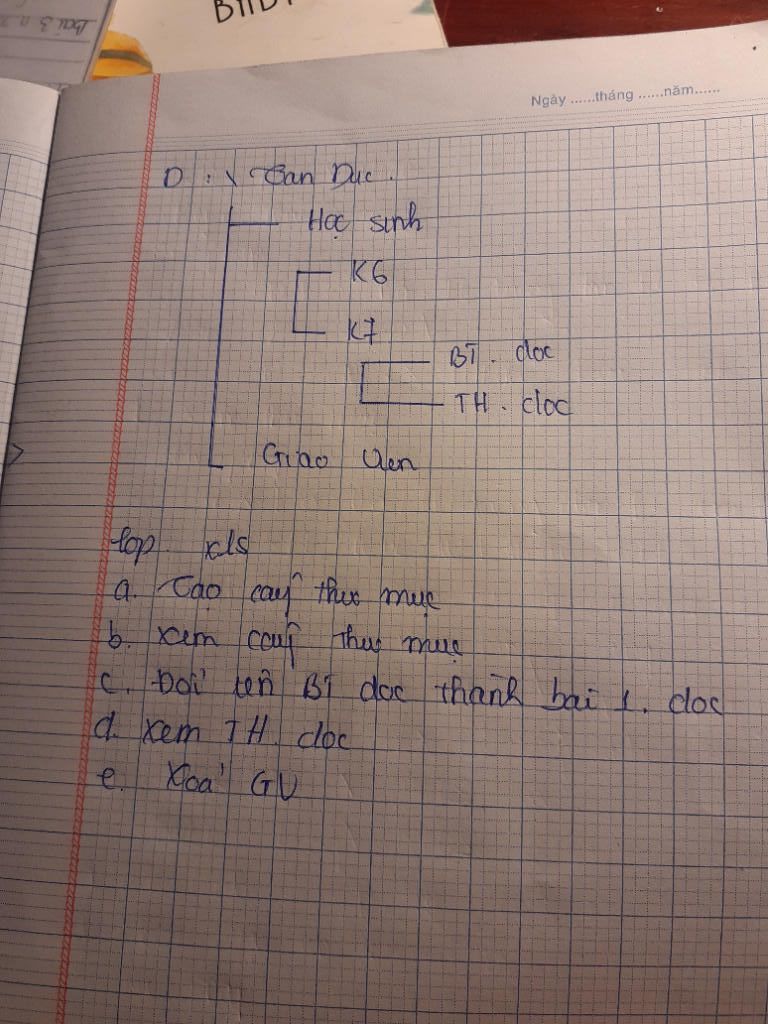 Bài 3
BTTĐT
Ngày ......tháng ......năm......
D : \ Tan Duc .
Học sinh
K6
K7
BT . doc
TH . doc
Giao Uen
lop . xls
a. Tạo cây thư mục
b. Xem cây thư mục
c. Đổi tên BT doc thành bai 1. doc
d. Xem TH. doc
e. Xoá GV